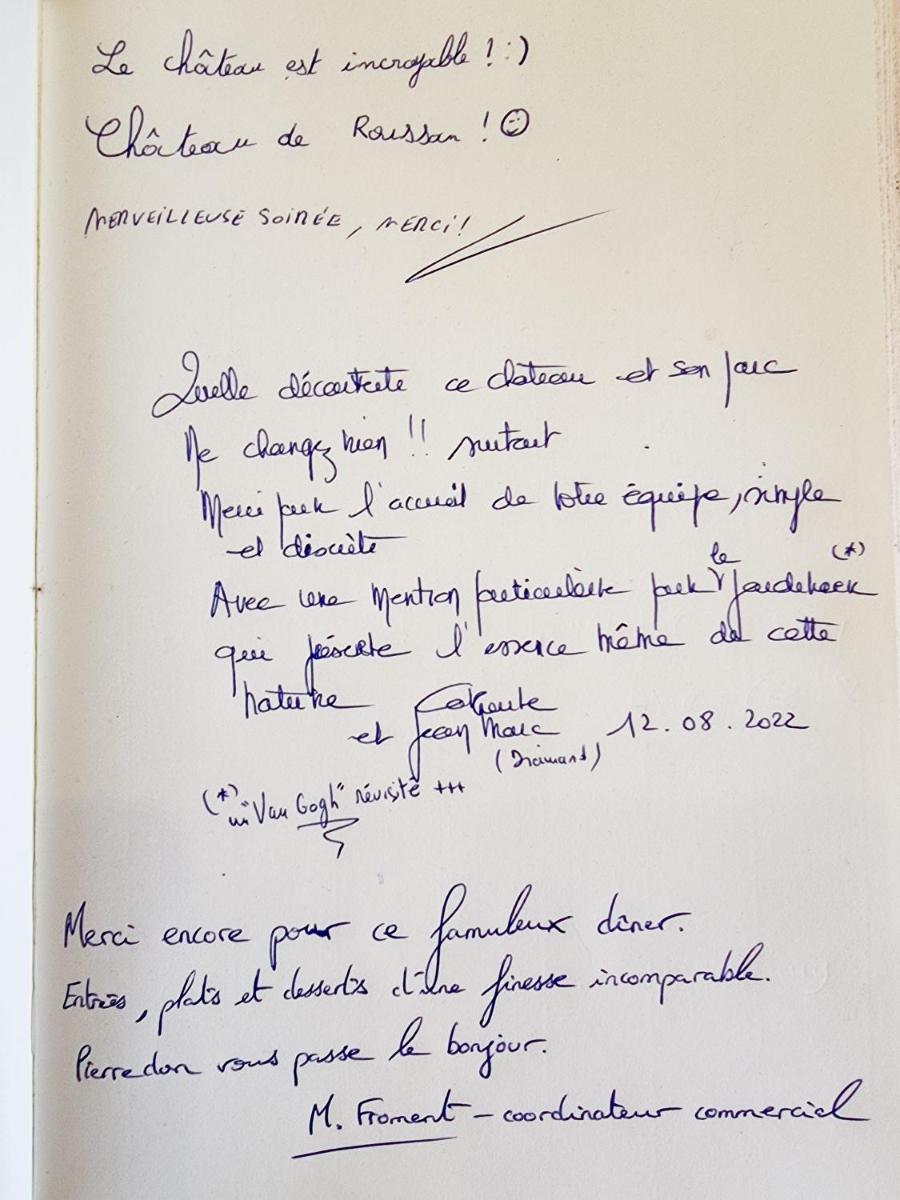 Le château est incroyable ! :)
Château de Roussan ! ☺
MERVEILLEUSE SOIRÉE, MERCI !
Quelle découverte ce chateau et son parc
Ne changez rien !! surtout
Merci pour l'accueil de votre équipe, simple
et discrète
Avec une mention particulière pour le jardinier (*)
qui présente l'essence même de cette
nature
et Jean Marc 12.08.2022
(*) "Van Gogh" révisité +++
Merci encore pour ce famuleux dîner.
Entrées, plats et desserts d'une finesse incomparable.
Pierredon vous passe le bonjour.
M. Froment – coordinateur commercial